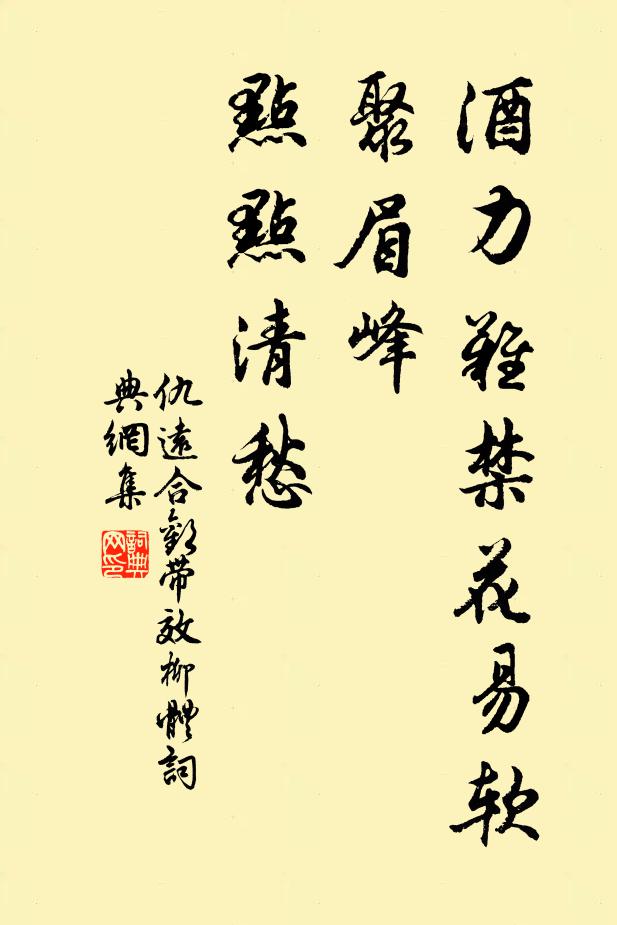 酒力難禁花易软
聚眉峰
點點清愁
仇遠合歡带效柳體詞
典網集
詞典网印